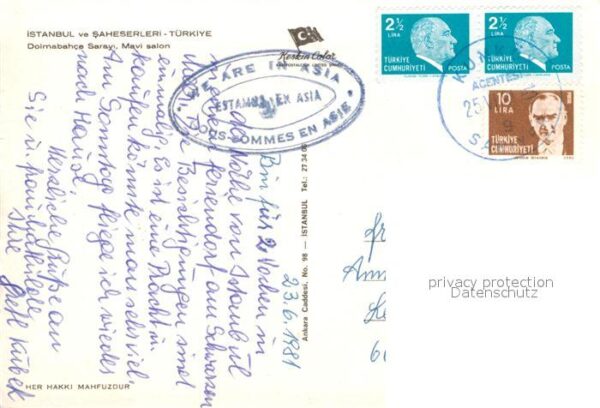 İSTANBUL ve ŞAHESERLERİ - TÜRKİYE
Dolmabahçe Sarayı, Mavi salon
Keskin Color
WE ARE IN ASIA
ESTAMBUL EN ASIA
NOUS SOMMES EN ASIE
2½
LIRA
TÜRKİYE
CUMHURİYETİ
POSTA
2½
LIRA
TÜRKİYE
CUMHURİYETİ
POSTA
ACENTESİ
25
10
LİRA
TÜRKİYE
CUMHURİYETİ
23.6.1981
Bin für 2 Wochen in
der Nähe von Istanbul
Feriendorf am Schwarzen
Meer,
einmalig. Es ist eine Pracht
kaufen könnte man sehr viel.
Am Sonntag fliege ich wieder
nach Hause.
Herzliche Grüße an
Sie u.
Ihre
Ankara Caddesi, No. 98 — İSTANBUL Tel.: 27 34 06
HER HAKKI MAHFUZDUR
privacy protection
Datenschutz